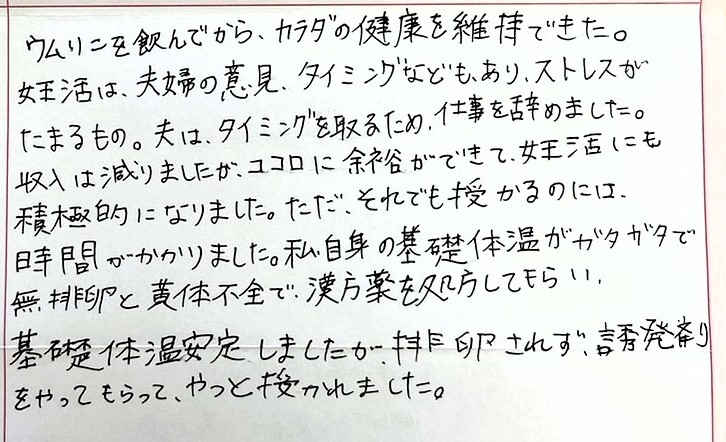 ウムリンを飲んでから、カラダの健康を維持できた。
妊活は、夫婦の意見、タイミングなどもあり、ストレスが
たまるもの。夫は、タイミングを取るため、仕事を辞めました。
収入は減りましたが、ココロに余裕ができて、妊活にも
積極的になりました。ただ、それでも授かるのには、
時間がかかりました。私自身の基礎体温がガタガタで
無排卵と黄体不全で、漢方薬を処方してもらい、
基礎体温安定しましたが、排卵されず、誘発剤
をやってもらって、やっと授かれました。